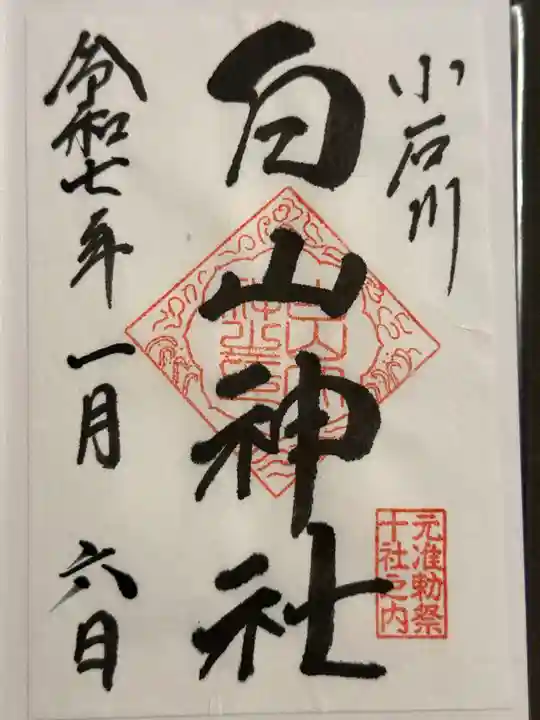 小石川
白山神社
元准勅祭
十社之内
令和七年 一月 六日